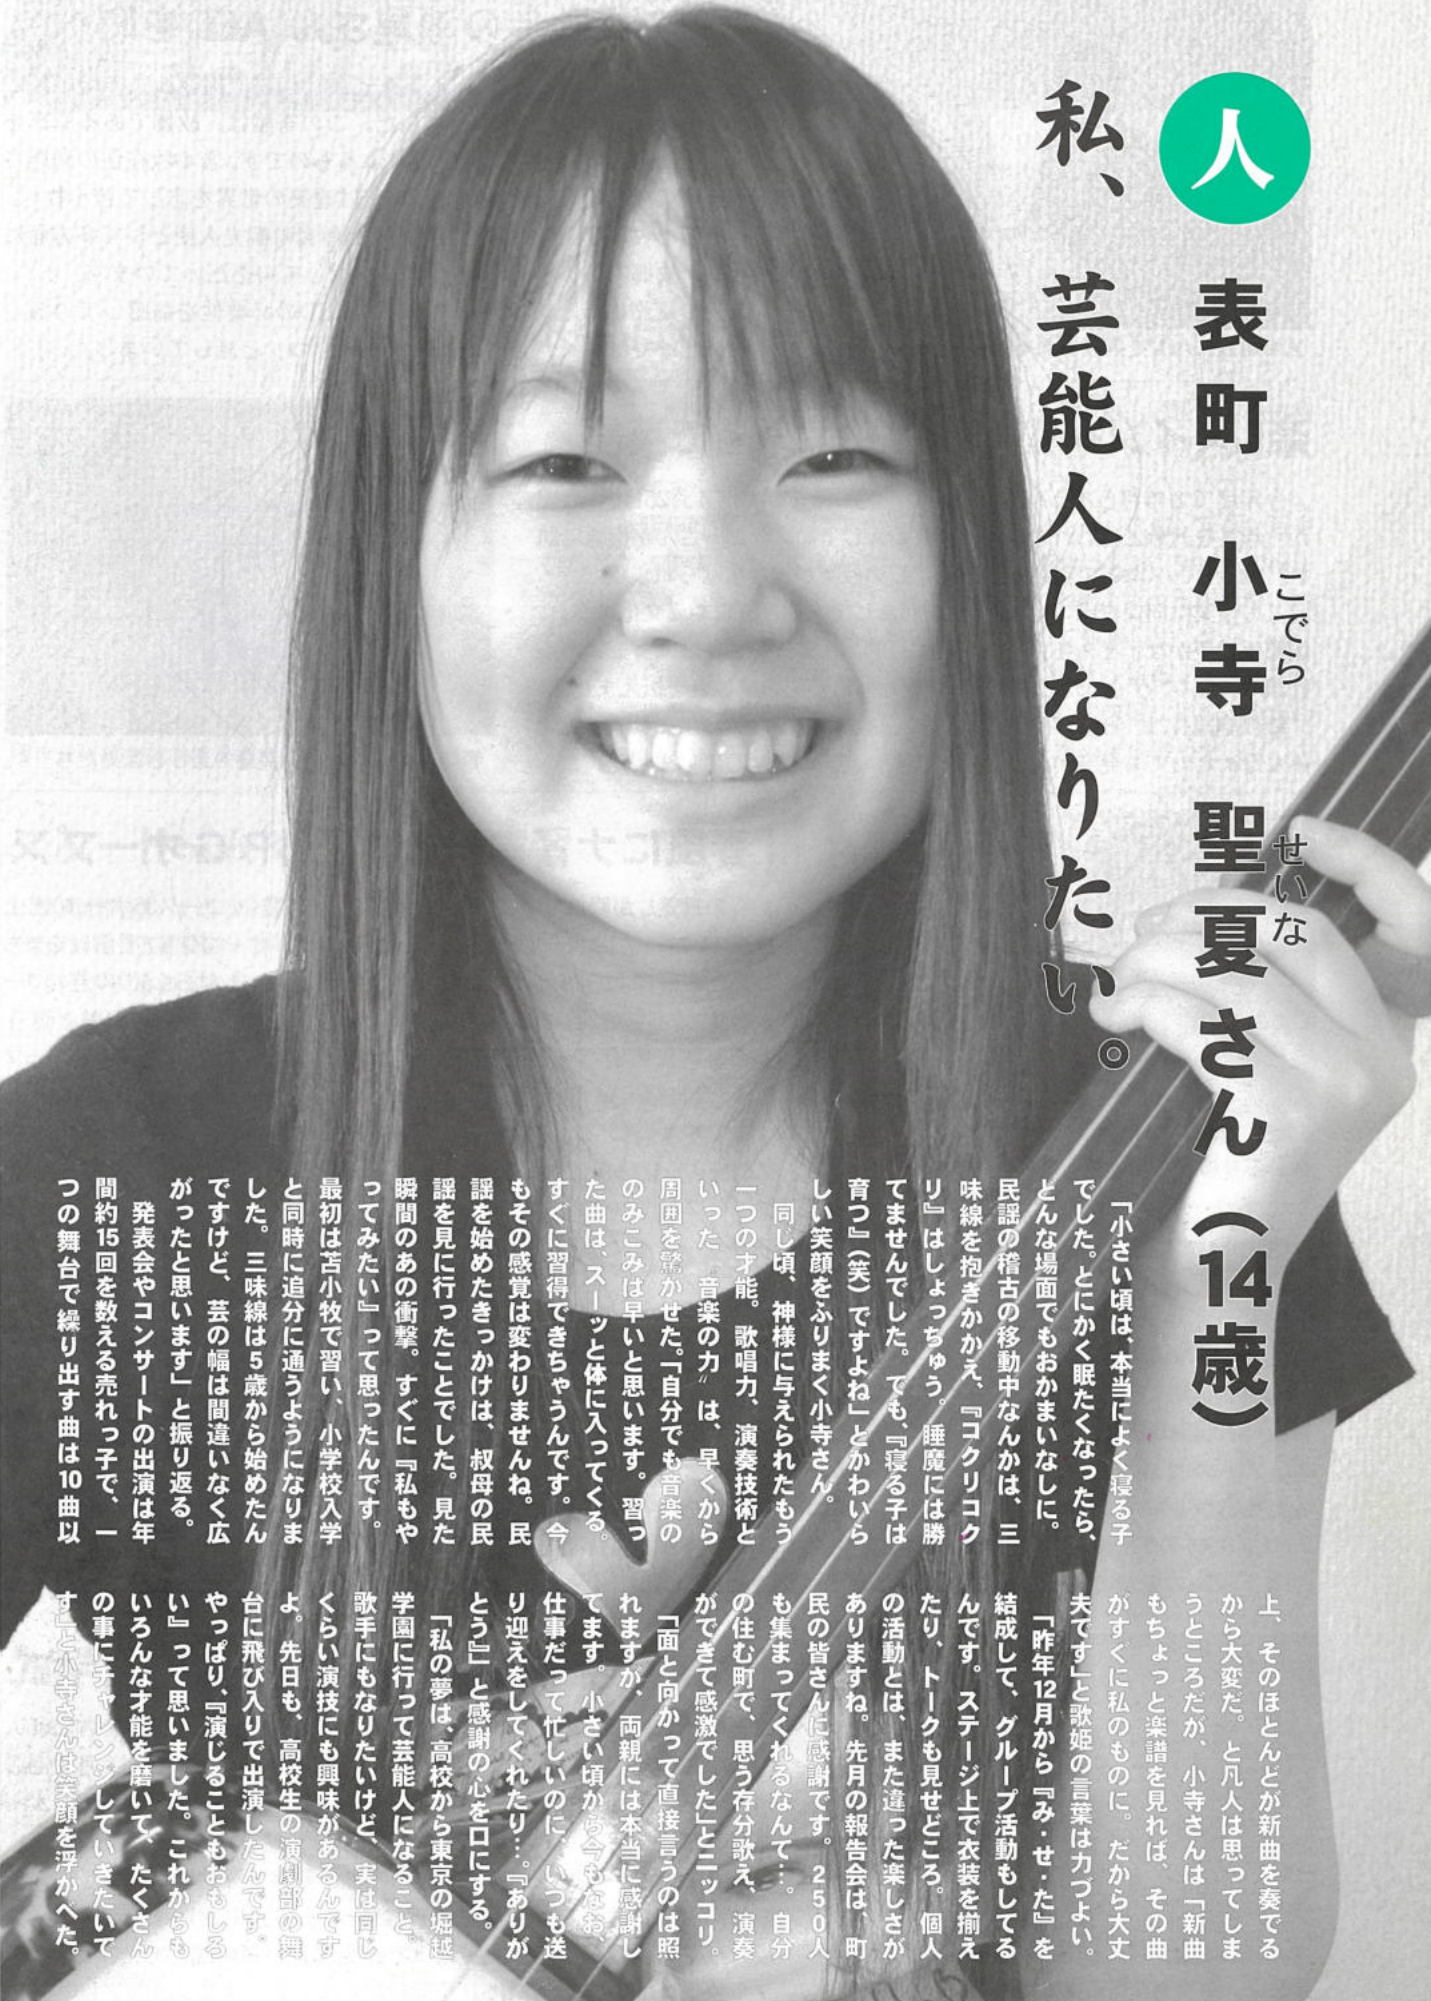 人
表町　小寺　聖夏さん（14歳）
こでら
せいな
私、芸能人になりたい。
「小さい頃は、本当によく寝る子
でした。とにかく眠たくなったら、
どんな場面でもおかまいなしに。
民謡の稽古の移動中なんかは、三
味線を抱きかかえ、『コクリコク
リ』はしょっちゅう。睡魔には勝
てませんでした。でも、『寝る子は
育つ』（笑）ですよね」とかわいら
しい笑顔をふりまく小寺さん。
同じ頃、神様に与えられたもう
一つの才能。歌唱力、演奏技術と
いった〝音楽の力〟は、早くから
周囲を驚かせた。「自分でも音楽の
のみこみは早いと思います。習っ
た曲は、スーッと体に入ってくる。
すぐに習得できちゃうんです。今
もその感覚は変わりませんね。民
謡を始めたきっかけは、叔母の民
謡を見に行ったことでした。見た
瞬間のあの衝撃。すぐに『私もや
ってみたい』って思ったんです。
最初は苫小牧で習い、小学校入学
と同時に追分に通うようになりま
した。三味線は5歳から始めたん
ですけど、芸の幅は間違いなく広
がったと思います」と振り返る。
発表会やコンサートの出演は年
間約15回を数える売れっ子で、一
つの舞台で繰り出す曲は10曲以
上、そのほとんどが新曲を奏でる
から大変だ。と凡人は思ってしま
うところだが、小寺さんは「新曲
もちょっと楽譜を見れば、その曲
がすぐに私のものに。だから大丈
夫です」と歌姫の言葉は力づよい。
「昨年12月から『み・せ・た』を
結成して、グループ活動もしてる
んです。ステージ上で衣装を揃え
たり、トークも見せどころ。個人
の活動とは、また違った楽しさが
ありますね。先月の報告会は、町
民の皆さんに感謝です。250人
も集まってくれるなんて…。自分
の住む町で、思う存分歌え、演奏
ができて感激でした」とニッコリ。
「面と向かって直接言うのは照
れますが、両親には本当に感謝し
てます。小さい頃から今もなお、
仕事だって忙しいのに、いつも送
り迎えをしてくれたり…。『ありが
とう』」と感謝の心を口にする。
「私の夢は、高校から東京の堀越
学園に行って芸能人になること。
歌手にもなりたいけど、実は同じ
くらい演技にも興味があるんです
よ。先日も、高校生の演劇部の舞
台に飛び入りで出演したんです。
やっぱり、『演じることもおもしろ
い』って思いました。これからも
いろんな才能を磨いて、たくさん
の事にチャレンジしていきたいで
す」と小寺さんは笑顔を浮かべた。